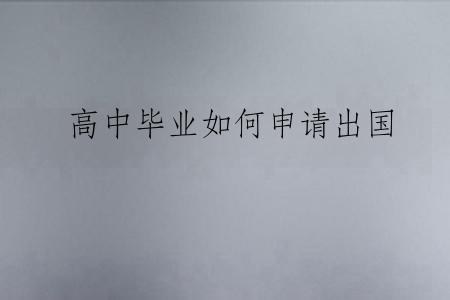 高中毕业如何申请出国